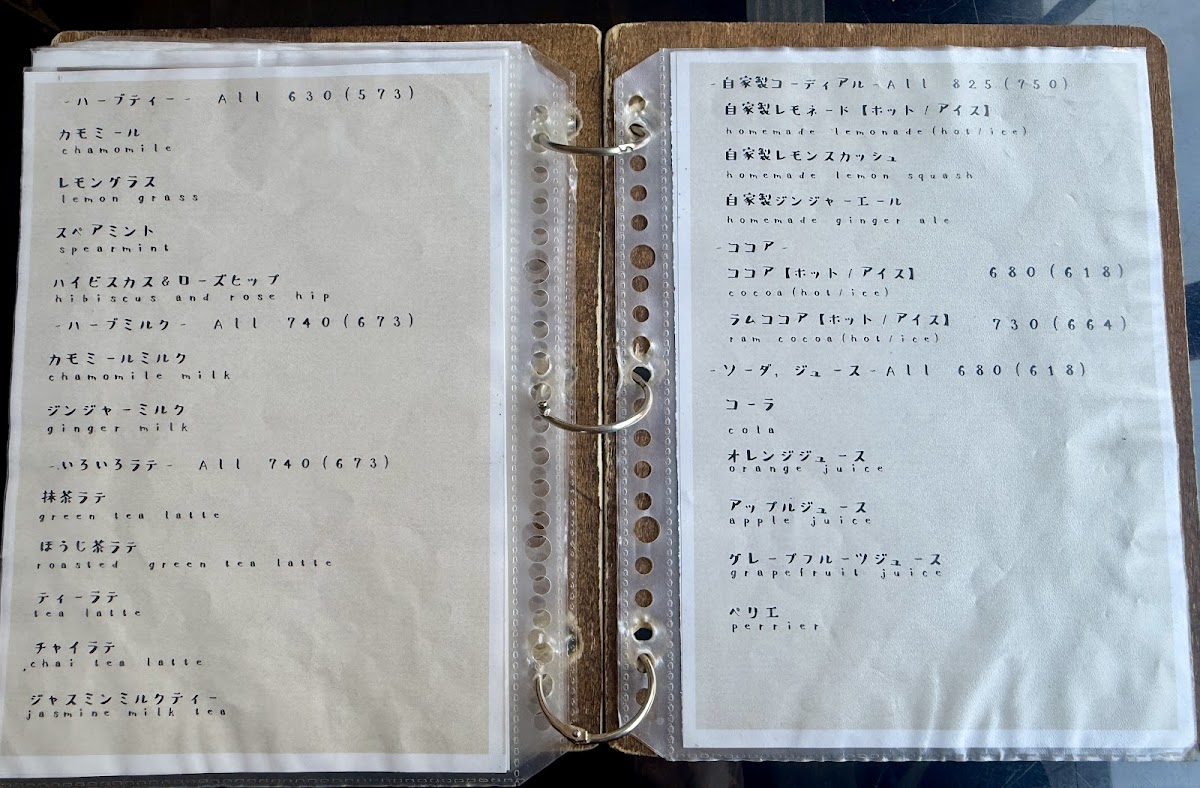 -ハーブティー- All 630(573)
カモミール
chamomile
レモングラス
lemon grass
スペアミント
spearmint
ハイビスカス&ローズヒップ
hibiscus and rose hip
-ハーブミルク- All 740(673)
カモミールミルク
chamomile milk
ジンジャーミルク
ginger milk
-いろいろラテ- All 740(673)
抹茶ラテ
green tea latte
ほうじ茶ラテ
roasted green tea latte
ティーラテ
tea latte
チャイラテ
chai tea latte
ジャスミンミルクティー
jasmine milk tea
-自家製コーディアル-All 825(750)
自家製レモネード【ホット/アイス】
homemade lemonade(hot/ice)
自家製レモンスカッシュ
homemade lemon squash
自家製ジンジャーエール
homemade ginger ale
-ココア-
ココア【ホット/アイス】 680(618)
cocoa(hot/ice)
ラムココア【ホット/アイス】 730(664)
ram cocoa(hot/ice)
-ソーダ, ジュース-All 680(618)
コーラ
cola
オレンジジュース
orange juice
アップルジュース
apple juice
グレープフルーツジュース
grapefruit juice
ペリエ
perrier